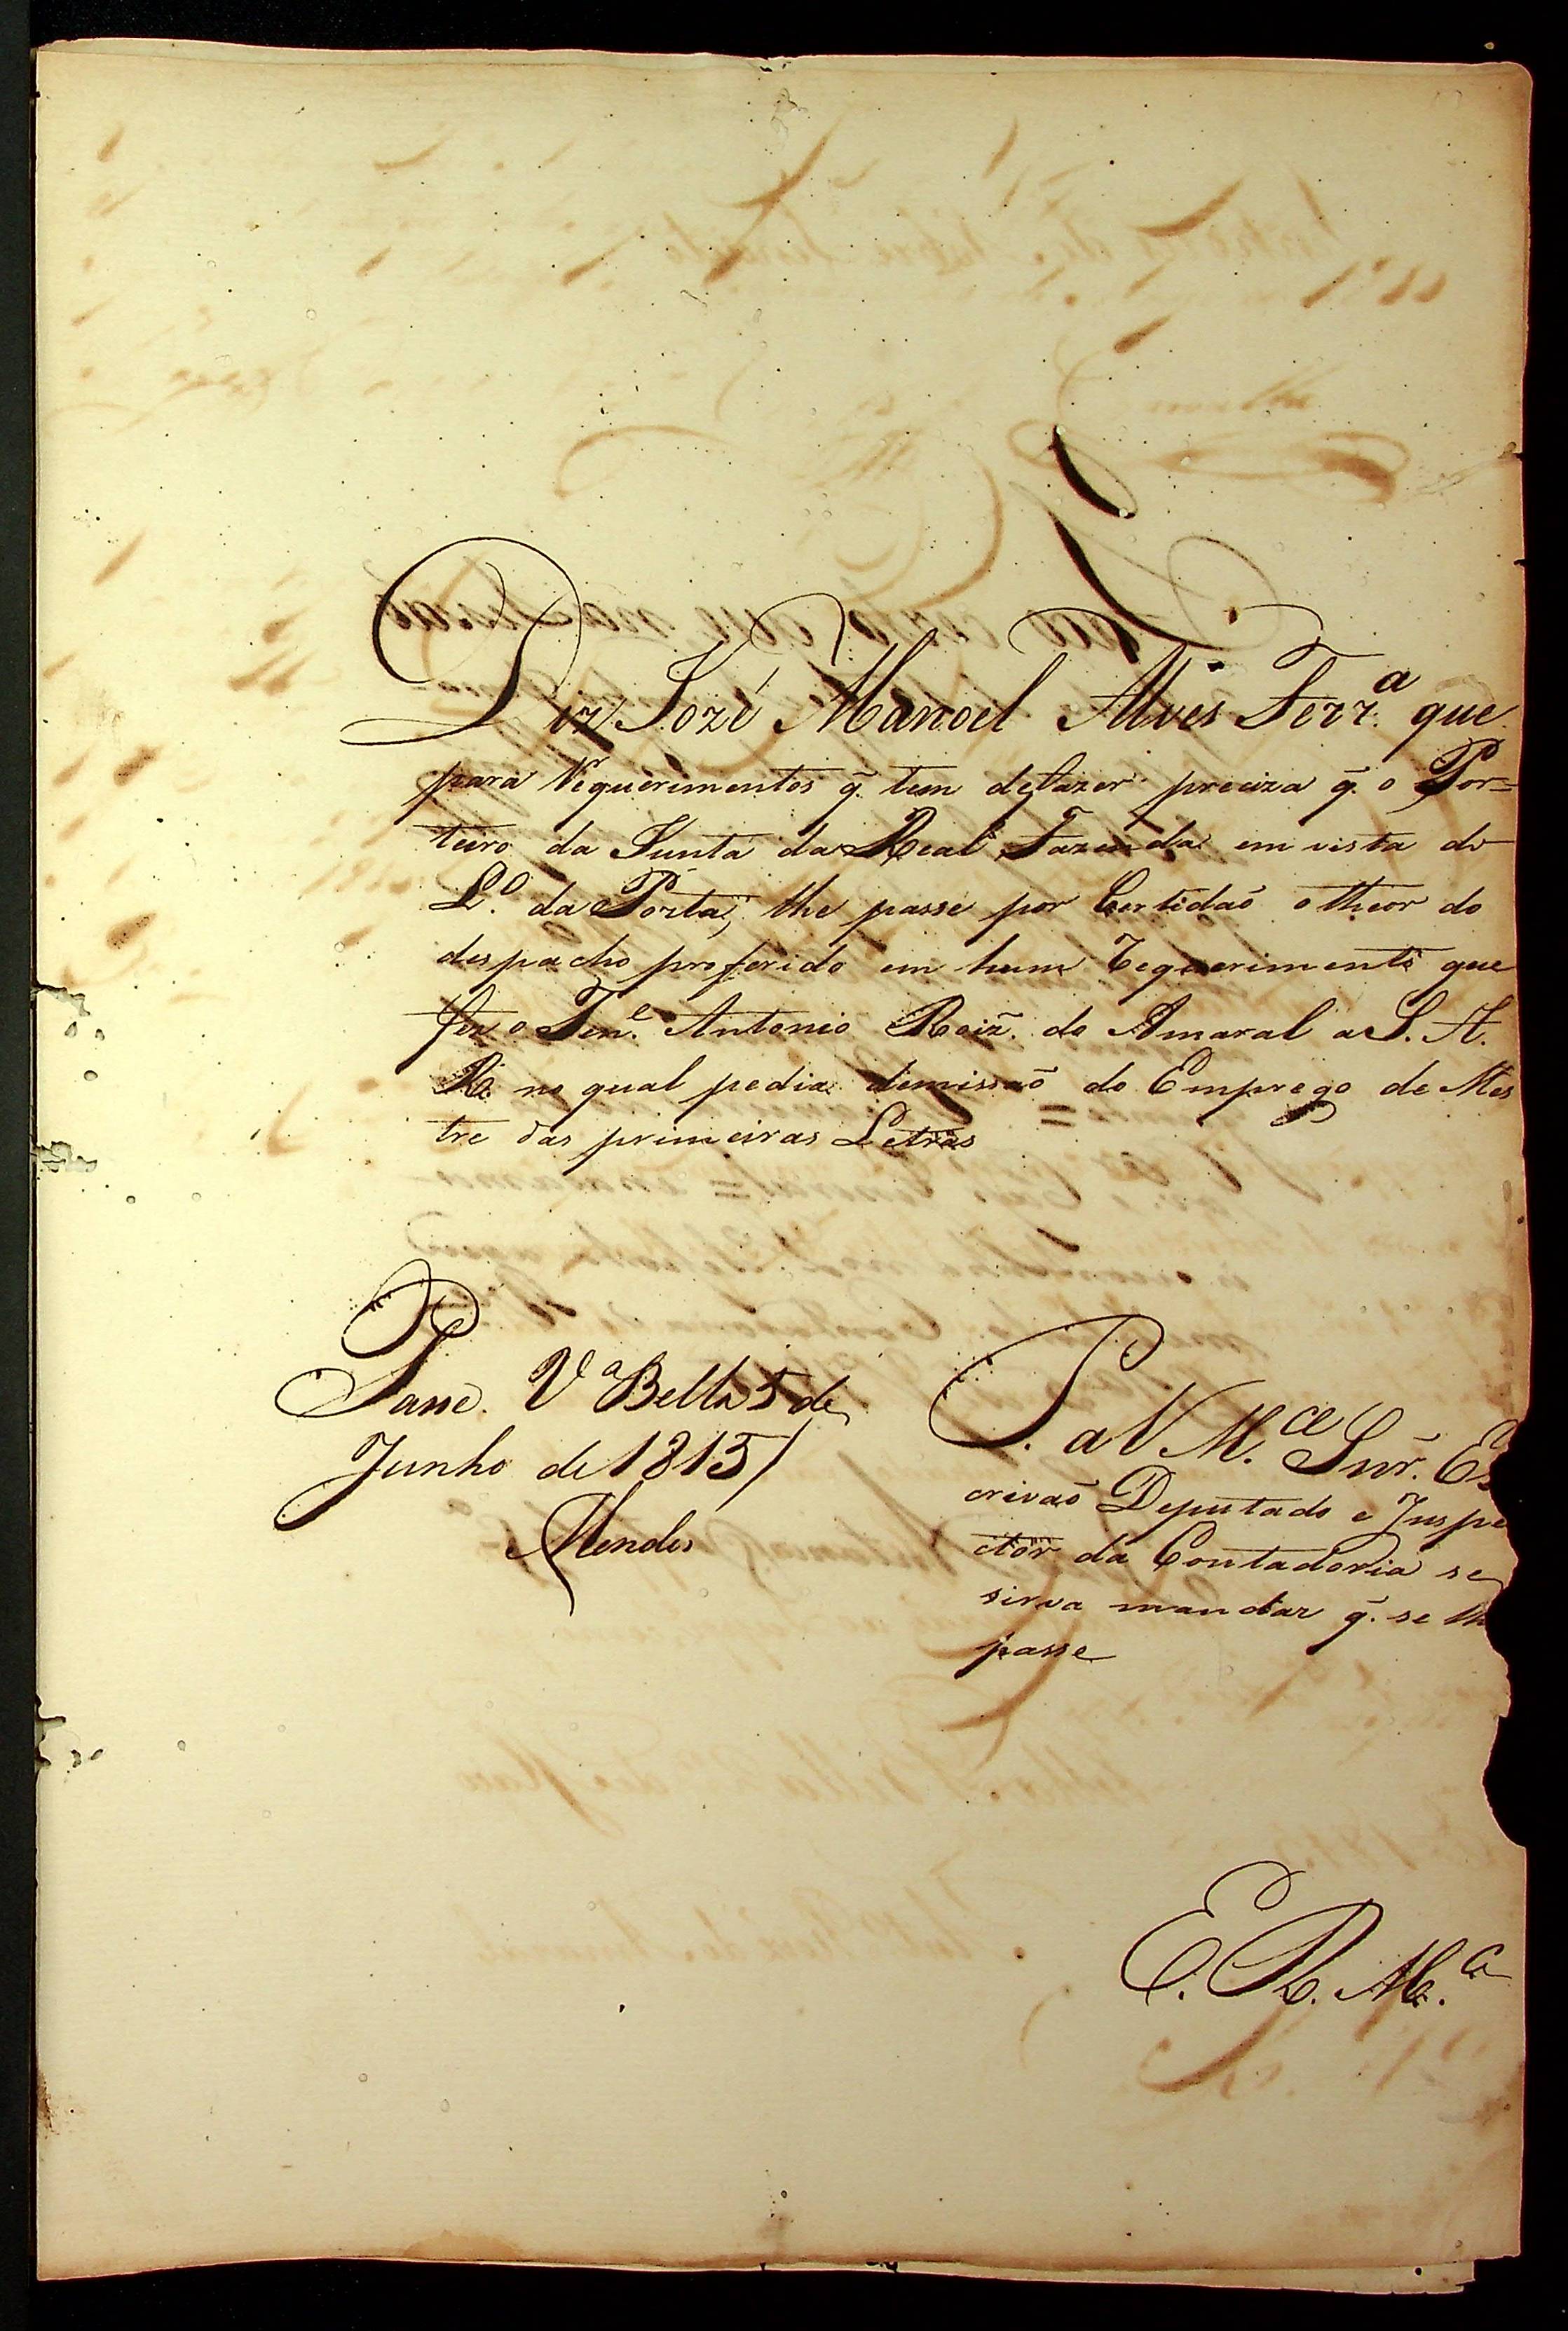 Diz Jozé Manoel Alves Ferr.ª que
para Requerimentos q̃. tem defazer preciza q̃. o Por=
teiro da Junta da Real Fazenda em vista do
L.º da Porta, lhe passe por Certidaõ otheor do
despacho proferido em hum Requerimento que
fez o Ten.e Antonio Roiz̃. do Amaral a S. A.
R. no qual pedia demissaõ do Emprego de Mes
tre das primeiras Letras
Passe. Vª Bella 5 de
Junho de 1815/
Mendes
P. a V M.ce Snr̃. Es
crivaõ Deputado e Inspe
ctor da Contadoria se
sirva mandar q̃. se lh
passe
E. R. M.ce